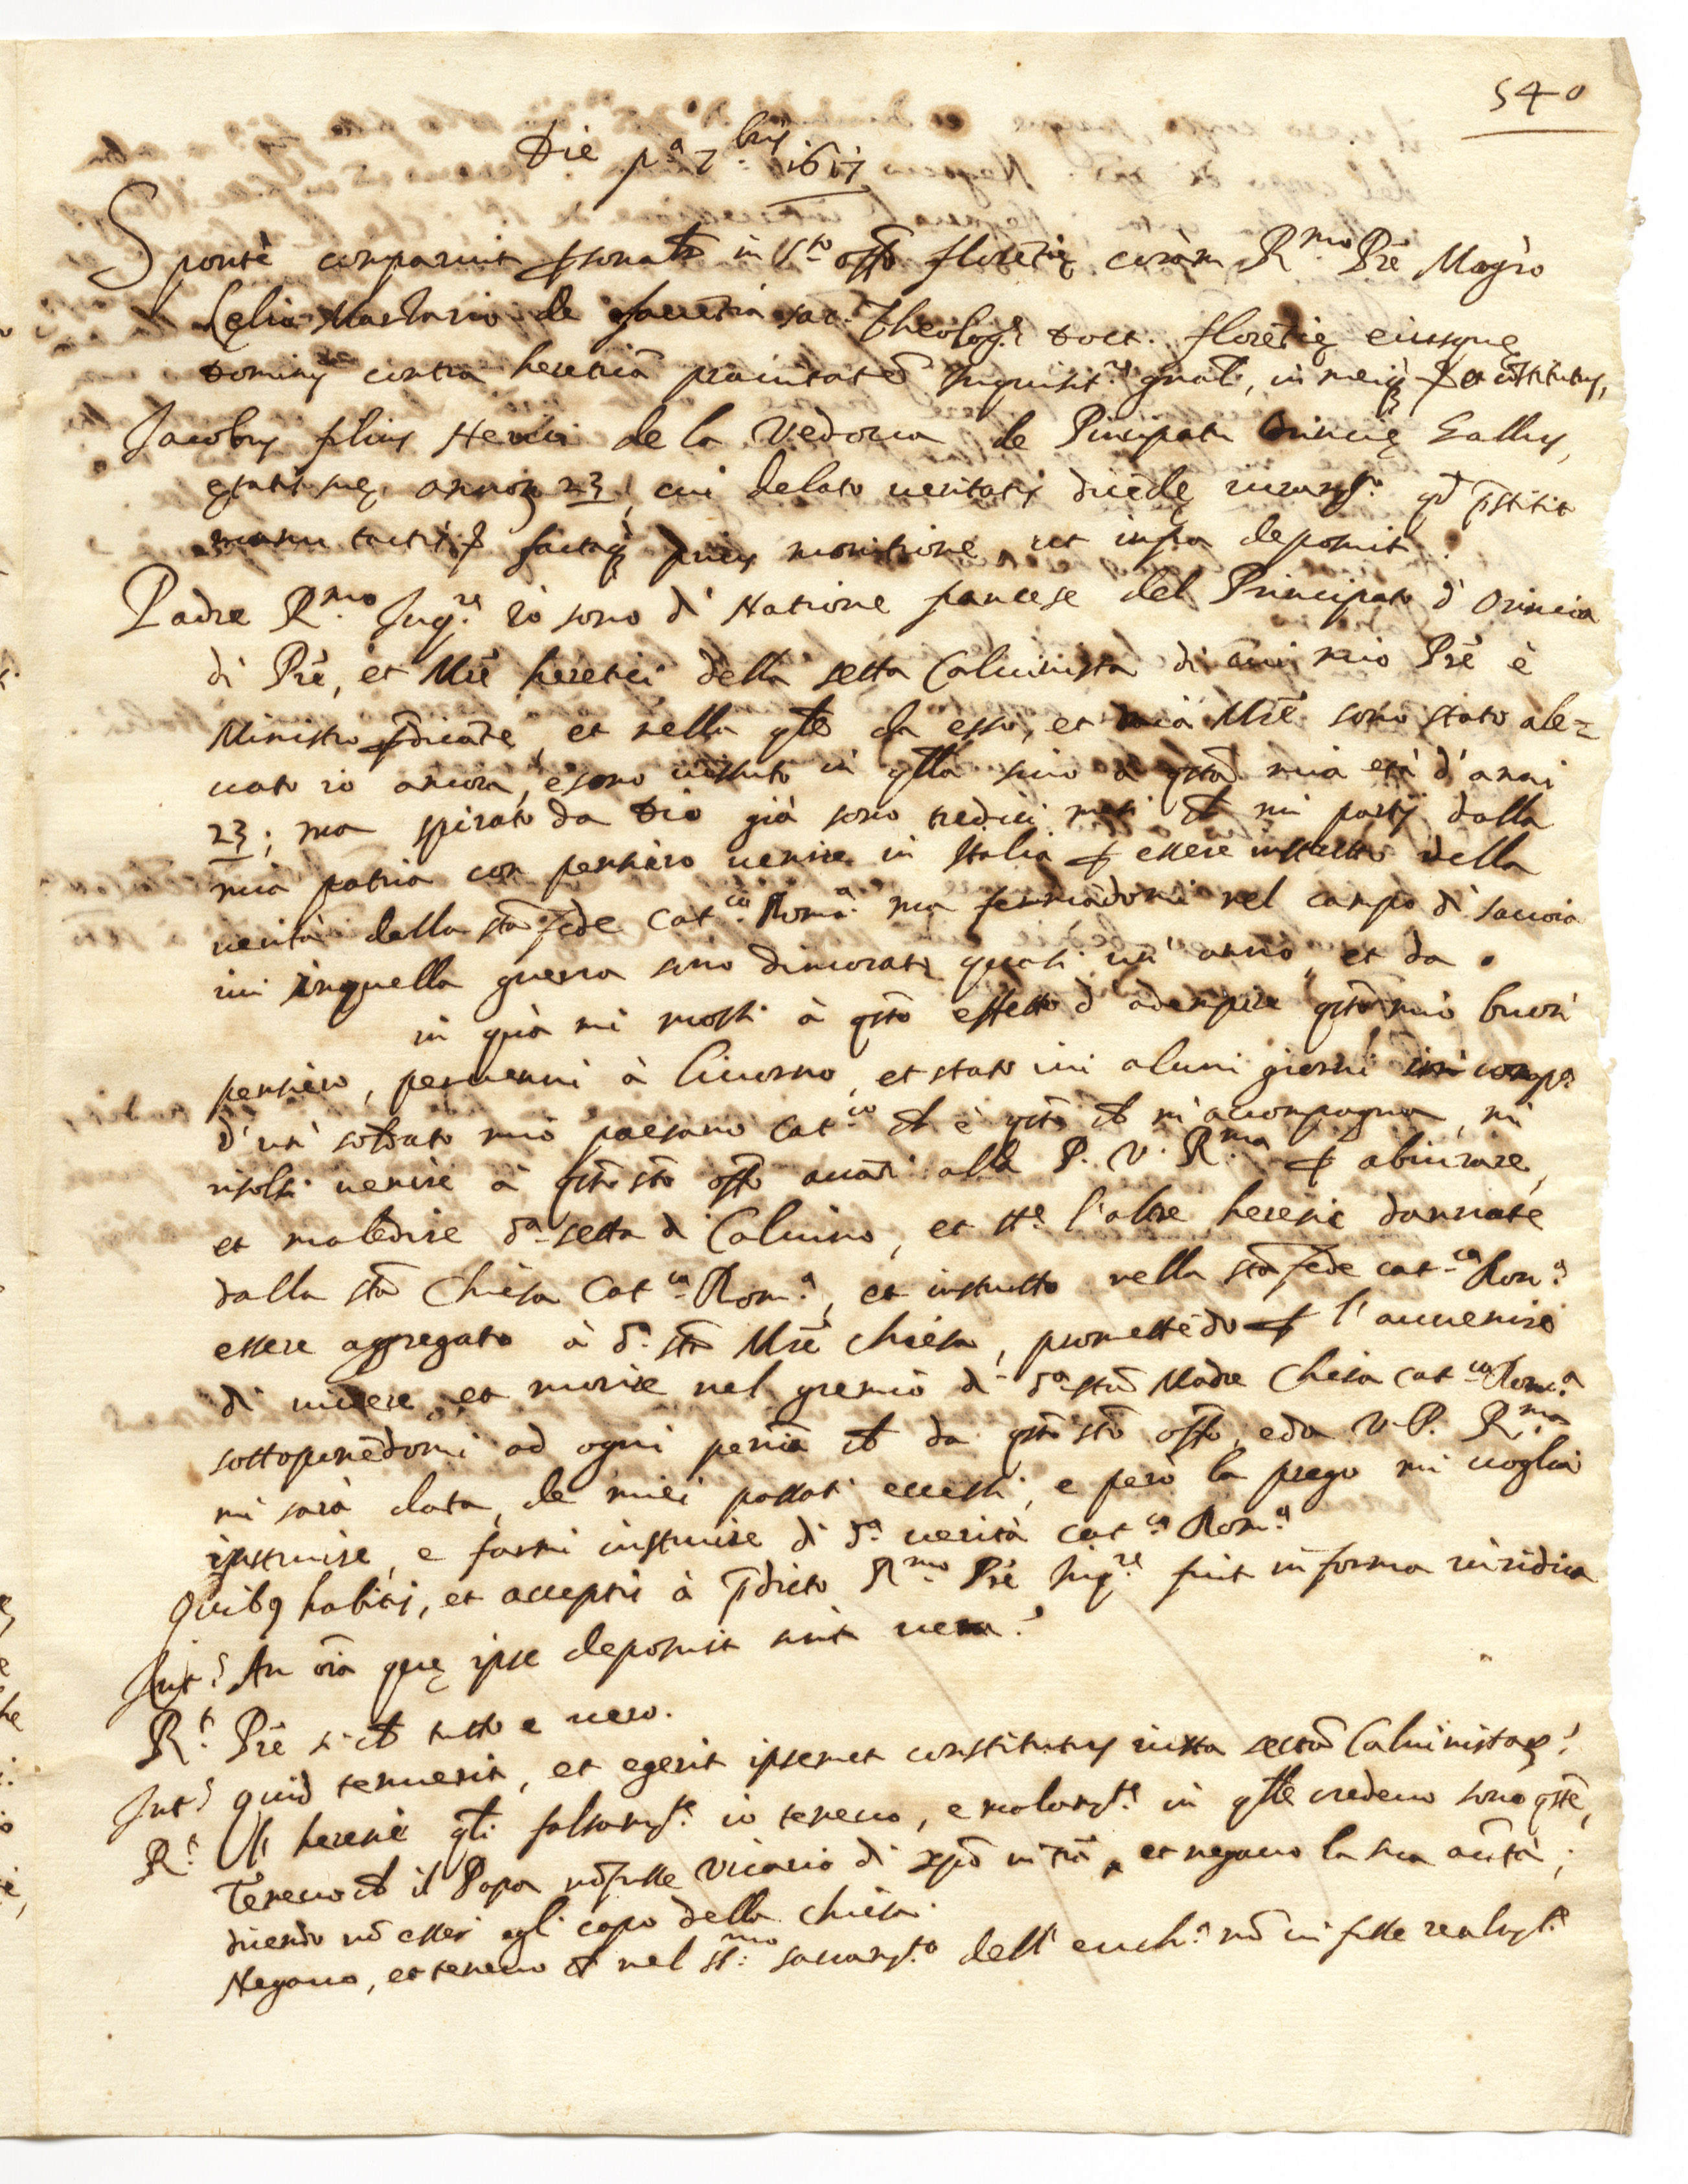 540
Die p.ª 7.bris 1617
Sponte comparuit psonalr in S.to offo florētię coram R.mo Prē Magro
Lelio Marzario de fauētia sac. Theolog.ę Doct. florētię eiusque
Dominij contra hereticā prauitatē Inquisit.re gnāli, in meiq p et cōstitutus,
Jacobus filius Henrici de la Vedoua de Principatu Orincię Gallus,
ętatis suę annorʒ 23, cui delato ueritatis dicēdę iuram.to qd p̄stitit
manu tactis &c factaq prius monitione, ut infra deposuit.
Padre R.mo Inq.re io sono di Natione francese del Principato d' Orincia
di Prē, et Mrē heretici della setta Caluinista di cui mio Prē è
Ministro p̄dicāte, et nella qle da esso, et mia Mrē sono stato ale=
uato io ancora, e sono uissuto in qlla sino à qsta mia età d'anni
23; ma spirato da Dio già sono tredici mesi ch mi partij dalla
mia patria con pensiero uenire in Italia p essere instrutto della
uerità della sta fede Cat.ca Roma.ª ma fermādomi nel campo di Sauoia
iui in quella guerra sono dimorato quasi un' anno, et da
in quà mi mossi à qsto effetto d' adempire qsto mio buon
pensiero, peruenni à Liuorno, et stato iui alcuni giorni in comp.ª
d' un' soldato mio paesano Cat.co ch è qsto ch m' accompagna, mi
risolsi uenire à qsto sto offo auāti alla P. V. R.ma p abiurare,
et maledire d.ª setta di Caluino, et tt.e l'altre heresie dannate
dalla sta Chiesa Cat.ca Rom.ª, et instrutto nella sta fede cat.ca Rom.ª
essere aggregato à d.ª sta Mrē chiesa, promettēdo p l' auuenire
di uiuere, et morire nel gremio di d.ª sta Madre Chiesa Cat.ca Rom.ª
sottoponēdomi ad ogni penia ch da qsto sto offo, e da V. P. R.ma
mi sarà data, de miei passati eccessi, e però la prego mi uoglia
instruire, e farmi instruire di d.ª uerità cat.ca Rom.ª
Quibq habitis, et acceptis à p̄dicto R.mo Prē Inq.re fuit in forma iuridica
Int.s An oīa quę ipse deposuit sint uera?
R.t Prē si ch tutto e uero.
Int.s quid tenuerit, et egerit ipsemet constitutus iuxta sectā Caluinistarʒ?
R.t Le heresie qli falsam.te io teneuo, e malam.te in qlle credeuo sono qste,
Teneuo ch il Papa nō fusse Vicario di xpō in trā, et negauo la sua autā;
dicendo nō esser egli capo della chiesa.
Negauo, et teneuo ch nel st.mo sacram.to dell' euch.ª nō ui fusse realm.te